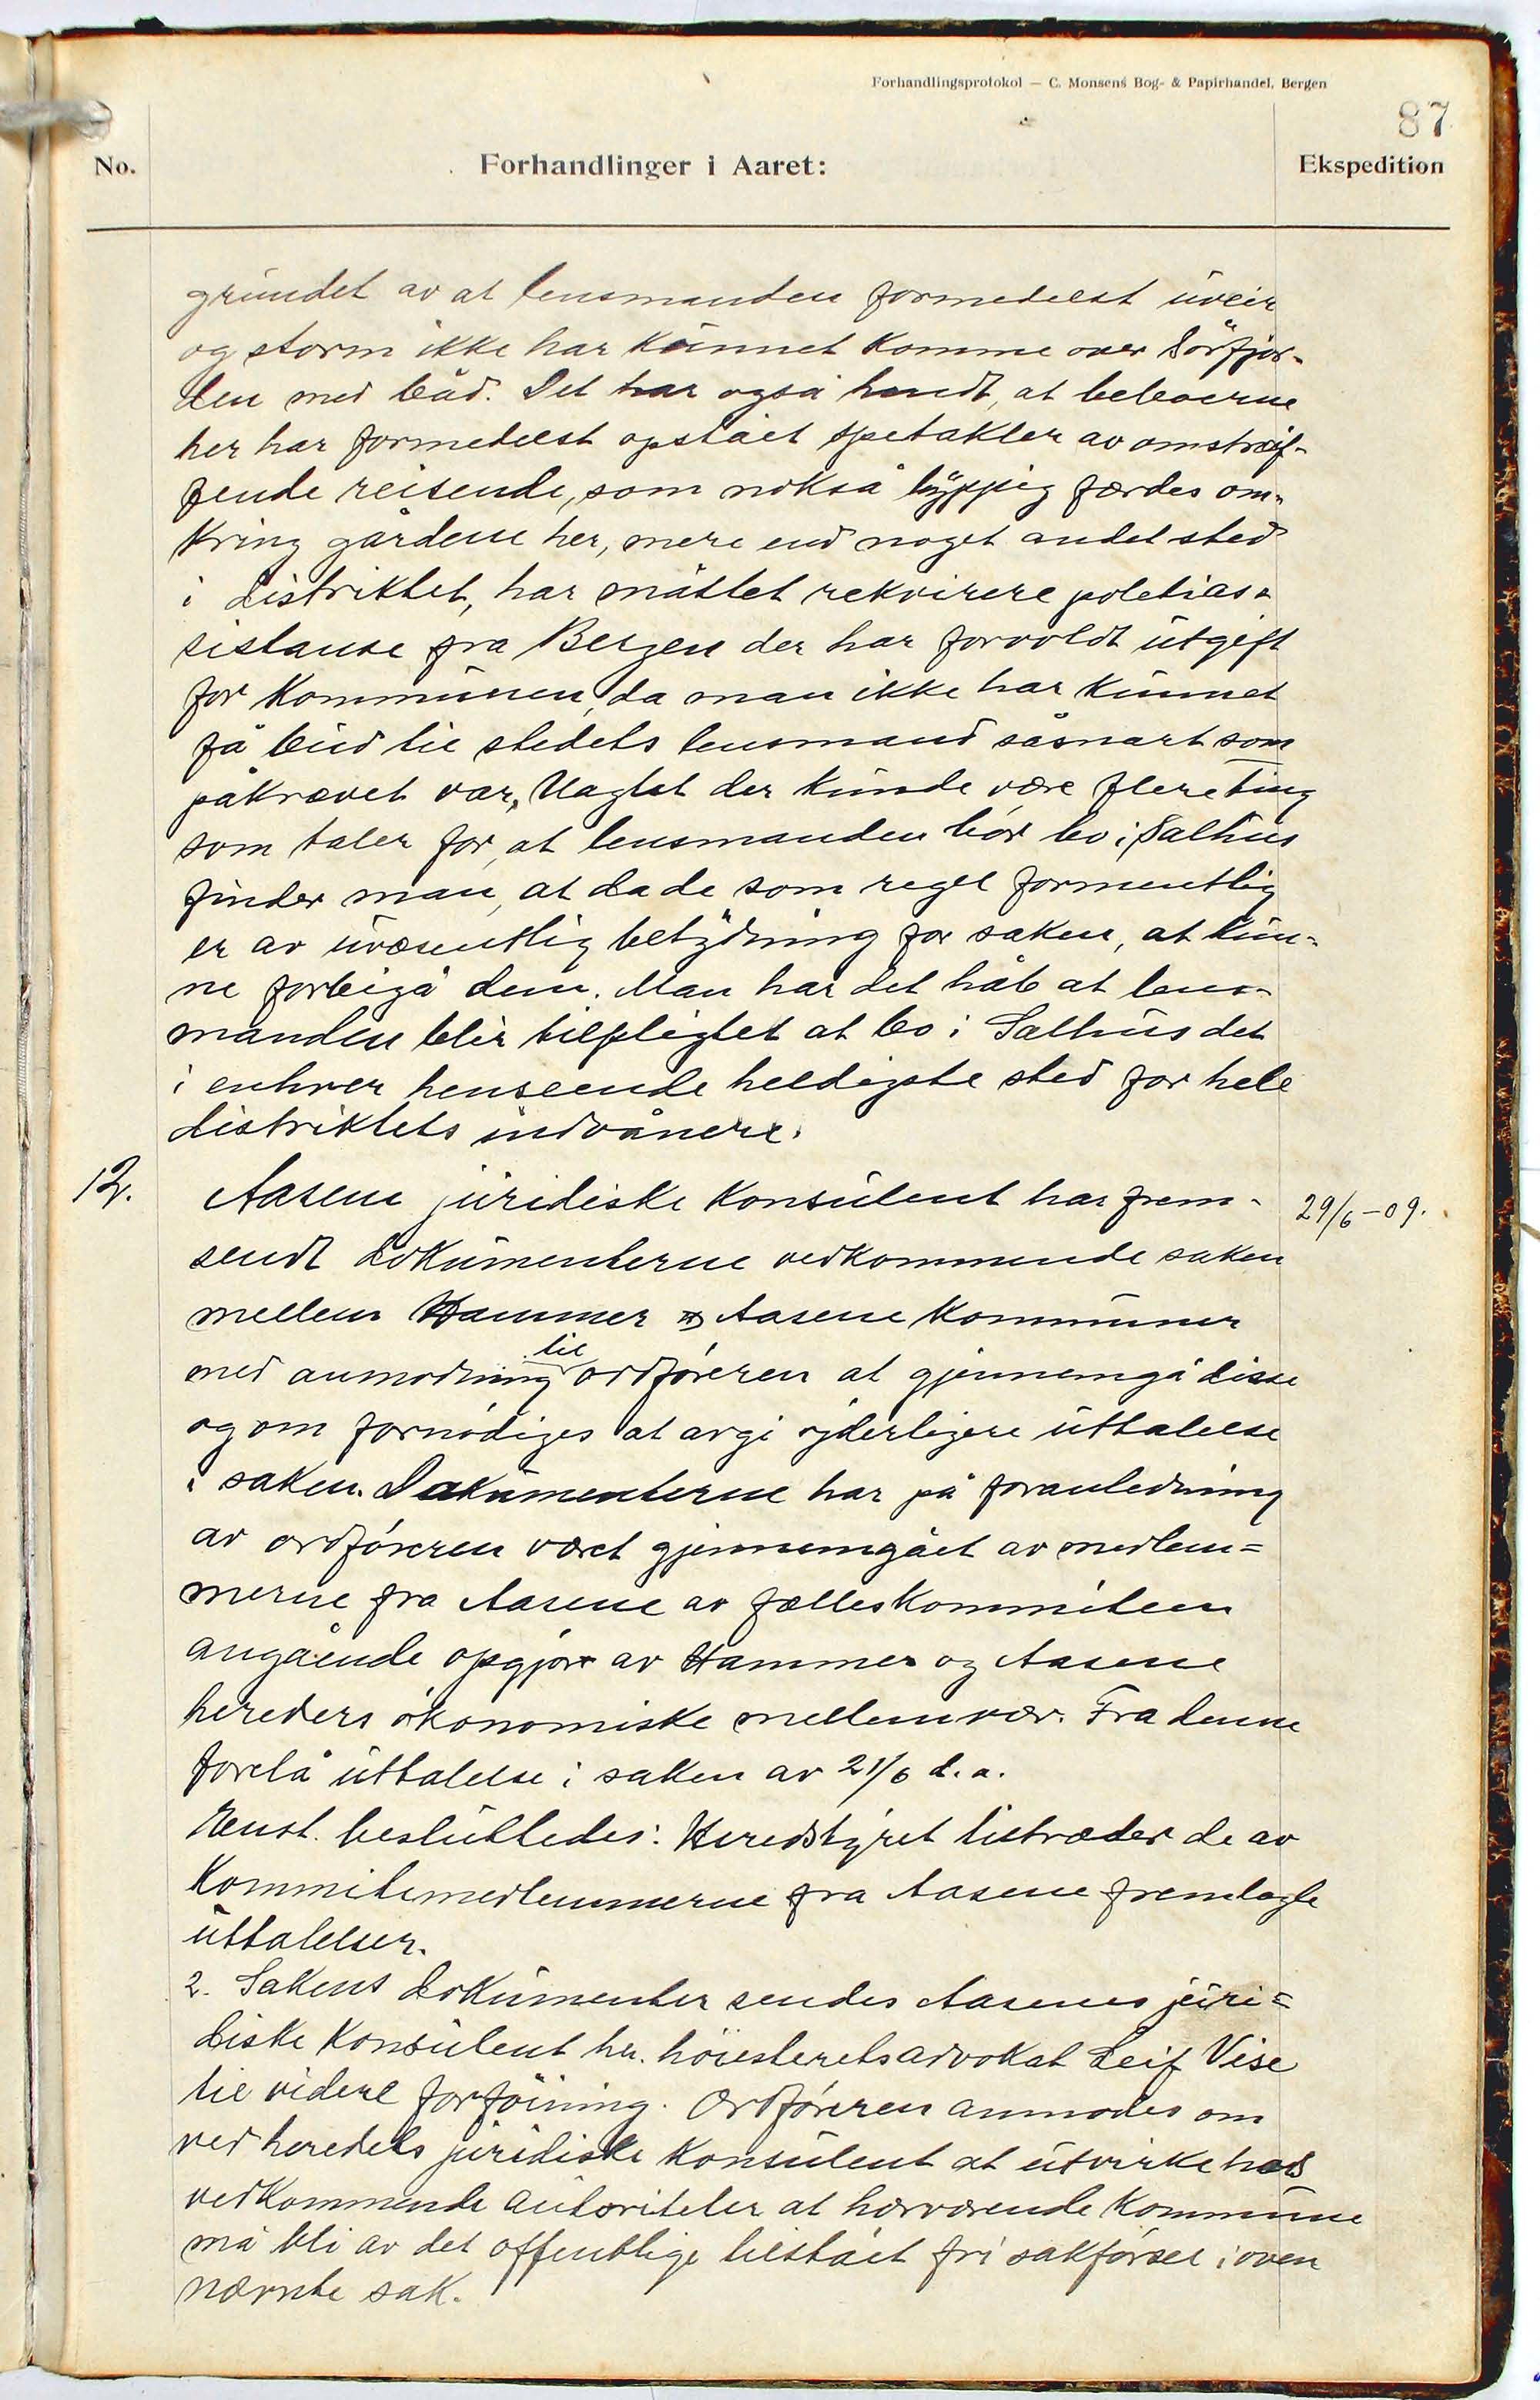 Forhandlingsprotokol — C. Monsens Bog- & Papirhandel, Bergen
87
No.
Forhandlinger i Aaret:
Ekspedition
grundet av at lensmanden formedelst uveir
og storm ikke har kunnet komme over Sörfjor-
den med båd. Det har også hendt, at beboerne
her har formedelst opstået spetakler av omstreif-
fende reisende, som nokså hyppig færdes om-
kring gårdene her, mere end noget andet sted
i distriktet, har måttet rekvirere politias-
sistanse fra Bergen der har forvoldt utgift
for kommunen, da man ikke har kunnet
få bud til stedets lensmand såsnart som
påkrævet var. Uagtet der kunde være flere ting
som taler for, at lensmanden bör bo i Salhus
finder man, at da de som regel formentlig
er av uvæsentlig betydning for saken, at kun-
ne forbigå dem. Man har det håb at lens-
manden blir tilpligtet at bo i Salhus det
i enhver henseende heldigste sted for hele
distriktets indvånere.
12. Aasene juridiske konsulent har frem-
29/6-09.
sendt dokumenterne vedkommende saken
mellem Hammer og Aasene kommuner
med anmodning til ordföreren at gjennemgå disse
og om fornödiges at avgi yderligere uttalelse
i saken. Dokumenterne har på foranledning
av ordföreren været gjennemgået av medlem=
merne fra Aasene av fælleskommiteen
angående opgjör av Hammer og Aasene
hereders ökonomiske mellemvær. Fra denne
forelå uttalelse i saken av 21/6 d.a.
Enst. besluttedes: Heredstyret tiltræder de av
kommitemedlemmerne fra Aasene fremlagte
uttalelser.
2. Sakens dokumenter sendes Aasenes juri=
diske konsulent hr. höiesteretsadvokat Leif Vise
til videre forföining. Ordföreren anmodes om
ved heredets juridiske konsulent at utvirke hos
vedkommende autoriteter at herværende kommune
må bli av det offentlige tilstået fri sakförsel i oven
nævnte sak.